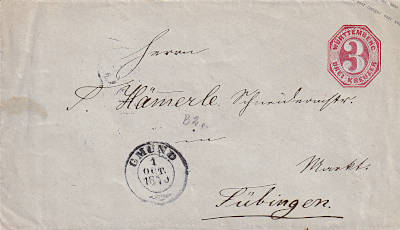 WÜRTTEMBERG
3
DREI KREUZER
Herrn
P. Hämmerle, Schneidermstr.
82
in
GMÜND
1
OCT.
1870
Markt.
Tübingen.